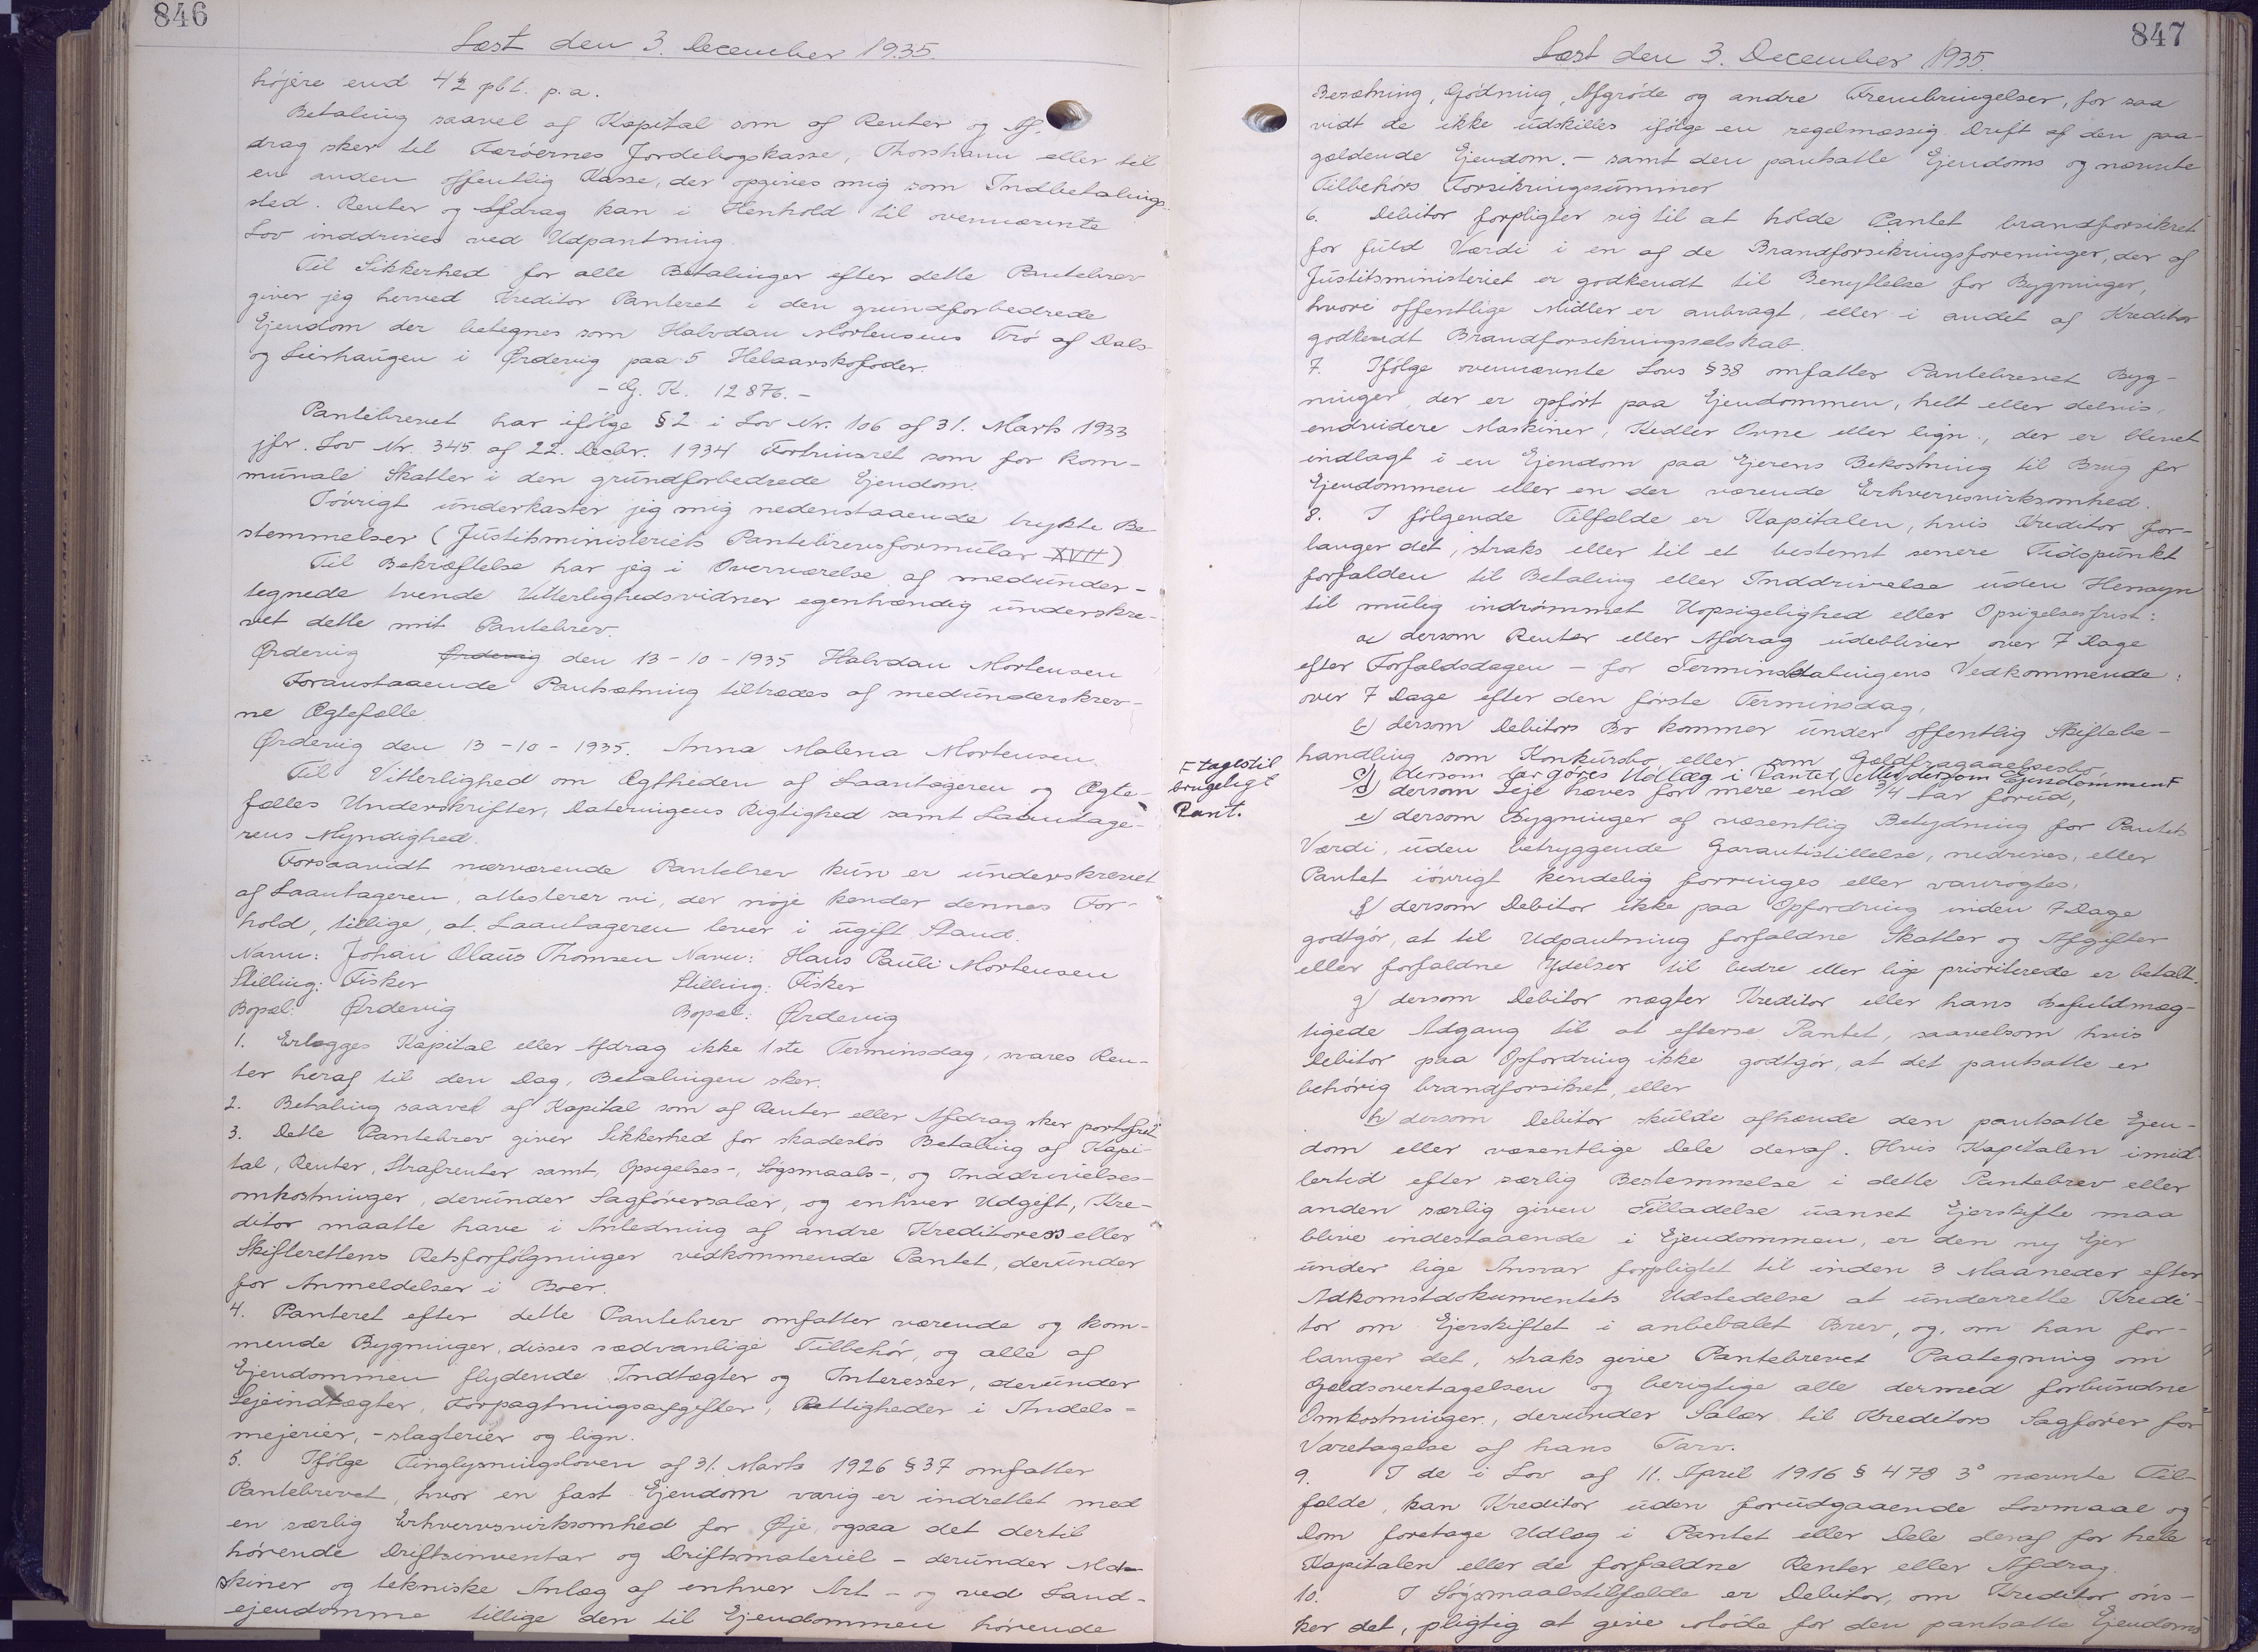 846
Læst den 3. December 1935.
højere end 4½ pCt. p.a.
Betaling saavel af Kapital som af Renter og Af-
drag sker til Færøernes Jordebogskasse, Thorshavn eller til
en anden offentlig Kasse, der opgives mig som Indbetalings-
sted. Renter og Afdrag kan i Henhold til ovennævnte
Lov inddrives ved Udpantning.
Til Sikkerhed for alle Betalinger efter dette Pantebrev
giver jeg herved Kreditor Panteret i den grundforbedrede
Ejendom der betegnes som Halvdan Mortensens Trø af Dals-
og Leirhaugen i Ørdevig paa 5 Helaarskofoder.
- G. K. 1287b. -
Pantebrevet har ifølge § 2 i Lov Nr. 106 af 31. Marts 1933
jfr. Lov Nr. 345 af 22. Decbr. 1934 Fortrinsret som for kom-
munale Skatter i den grundforbedrede Ejendom.
Iøvrigt underkaster jeg mig nedenstaaende trykte Be-
stemmelser (Justitsministeriets Pantebrevsformular XVII)
Til Bekræftelse har jeg i Overværelse af medunder-
tegnede tvende Vitterlighedsvidner egenhændig underskre-
vet dette mit Pantebrev.
Ørdevig Ørdevig den 13-10-1935 Halvdan Mortensen
Foranstaaende Pantsætning tiltrædes af medunderskrev-
ne Ægtefælle.
Ørdevig den 13-10-1935. Anna Malena Mortensen.
Til Vitterlighed om Ægtheden af Laantageren og Ægte-
fælles Underskrifter, Dateringens Rigtighed samt Laantage-
rens Myndighed.
Forsaavidt nærværende Pantebrev kun er underskrevet
af Laantageren, attesterer vi, der nøje kender dennes For-
hold, tillige, at Laantageren lever i ugift Stand.
Navn: Johan Olaus Thomsen Navn: Hans Pauli Mortensen
Stilling: Fisker Stilling: Fisker
Bopæl: Ørdevig Bopæl: Ørdevig
1. Erlægges Kapital eller Afdrag ikke 1ste Terminsdag, svares Ren-
ter heraf til den Dag, Betalingen sker.
2. Betaling saavel af Kapital som af Renter eller Afdrag sker portofrit
3. Dette Pantebrev giver Sikkerhed for skadesløs Betaling af Kapi-
tal, Renter, Strafrenter samt, Opsigelses-, Søgsmaals-, og Inddrivelses-
omkostninger, derunder Sagførersalær, og enhver Udgift, Kre-
ditor maatte have i Anledning af andre Kreditorers eller
Skifterettens Retsforfølgninger vedkommende Pantet, derunder
for Anmeldelser i Boer.
4. Panteret efter dette Pantebrev omfatter værende og kom-
mende Bygninger, disses sædvanlige Tilbehør, og alle af
Ejendommen flydende Indtægter og Interesser, derunder
Lejeindtægter, Forpagtningsafgifter, Rettigheder i Andels-
mejerier, -slagterier og lign.
5. Ifølge Tinglysningsloven af 31. Marts 1926 § 37 omfatter
Pantebrevet, hvor en fast Ejendom varig er indrettet med
en særlig Erhvervsvirksomhed for Øje, ogsaa det dertil
hørende Driftsinventar og Driftsmateriel - derunder Ma-
skiner og tekniske Anlæg af enhver Art - og ved Land-
ejendomme tillige den til Ejendommen hørende
847
Læst den 3. December 1935.
Besætning, Gødning, Afgrøde og andre Frembringelser, for saa
vidt de ikke udskilles ifølge en regelmæssig Drift af den paa-
gældende Ejendom. - samt den pantsatte Ejendoms og nævnte
Tilbehørs Forsikringssummer
6. Debitor forpligter sig til at holde Pantet brandforsikret
for fuld Værdi i en af de Brandforsikringsforeninger, der af
Justitsministeriet er godkendt til Benyttelse for Bygninger,
hvori offentlige Midler er anbragt, eller i andet af Kreditor
godkendt Brandforsikringsselskab.
7. Ifølge ovennævnte Lovs § 38 omfatter Pantebrevet Byg-
ninger, der er opført paa Ejendommen, helt eller delvis,
endvidere Maskiner, Kedler Ovne eller lign., der er blevet
indlagt i en Ejendom paa Ejerens Bekostning til Brug for
Ejendommen eller en der værende Erhvervsvirksomhed.
8. I følgende Tilfælde er Kapitalen, hvis Kreditor for-
langer det, straks eller til et bestemt senere Tidspunkt
forfalden til Betaling eller Inddrivelse uden Hensyn
til mulig indrømmet Uopsigelighed eller Opsigelsesfrist:
a) dersom Renter eller Afdrag udebliver over 7 Dage
efter Forfaldsdagen - for Terminsbetalingens Vedkommende:
over 7 Dage efter den første Terminsdag,
b) dersom Debitors Bo kommer under offentlig Skiftebe-
handling som Konkursbo eller som Gældfragaaelsesbo,
c) dersom der gøres Udlæg i Pantet, eller dersom Ejendommen F
d) dersom Leje hæves for mere end ¾ Aar forud,
F tages til
brugeligt
Pant.
e) dersom Bygninger af væsentlig Betydning for Pantets
Værdi, uden betryggende Garantistillelse, nedrives, eller
Pantet iøvrigt kendelig forringes eller vanrøgtes,
f) dersom Debitor ikke paa Opfordring inden 7 Dage
godtgør, at til Udpantning forfaldne Skatter og Afgifter
eller forfaldne Ydelser til bedre eller lige prioriterede er betalt.
g) dersom Debitor nægter Kreditor eller hans Befuldmæg-
tigede Adgang til at efterse Pantet, saavelsom hvis
Debitor paa Opfordring ikke godtgør, at det pantsatte er
behørig brandforsikret, eller
h) dersom Debitor skulde afhænde den pantsatte Ejen-
dom eller væsentlige Dele deraf. Hvis Kapitalen imid-
lertid efter særlig Bestemmelse i dette Pantebrev eller
anden særlig given Tilladelse uanset Ejerskifte maa
blive indestaaende i Ejendommen, er den ny Ejer
under lige Ansvar forpligtet til inden 3 Maaneder efter
Adkomstdokumentets Udstedelse at underrette Kredi-
tor om Ejerskiftet i anbefalet Brev, og, om han for-
langer det, straks give Pantebrevet Paategning om
Gældsovertagelsen og berigtige alle dermed forbundne
Omkostninger, derunder Salær til Kreditors Sagfører for
Varetagelse af hans Tarv.
9. I de i Lov af 11. April 1916 § 478 3° nævnte Til-
fælde, kan Kreditor uden forudgaaende Lovmaal og
Dom foretage Udlæg i Pantet eller Dele deraf for hele
Kapitalen eller de forfaldne Renter eller Afdrag.
10. I Søgsmaalstilfælde er Debitor, om Kreditor øns-
ker det, pligtig at give Møde for den pantsatte Ejendoms